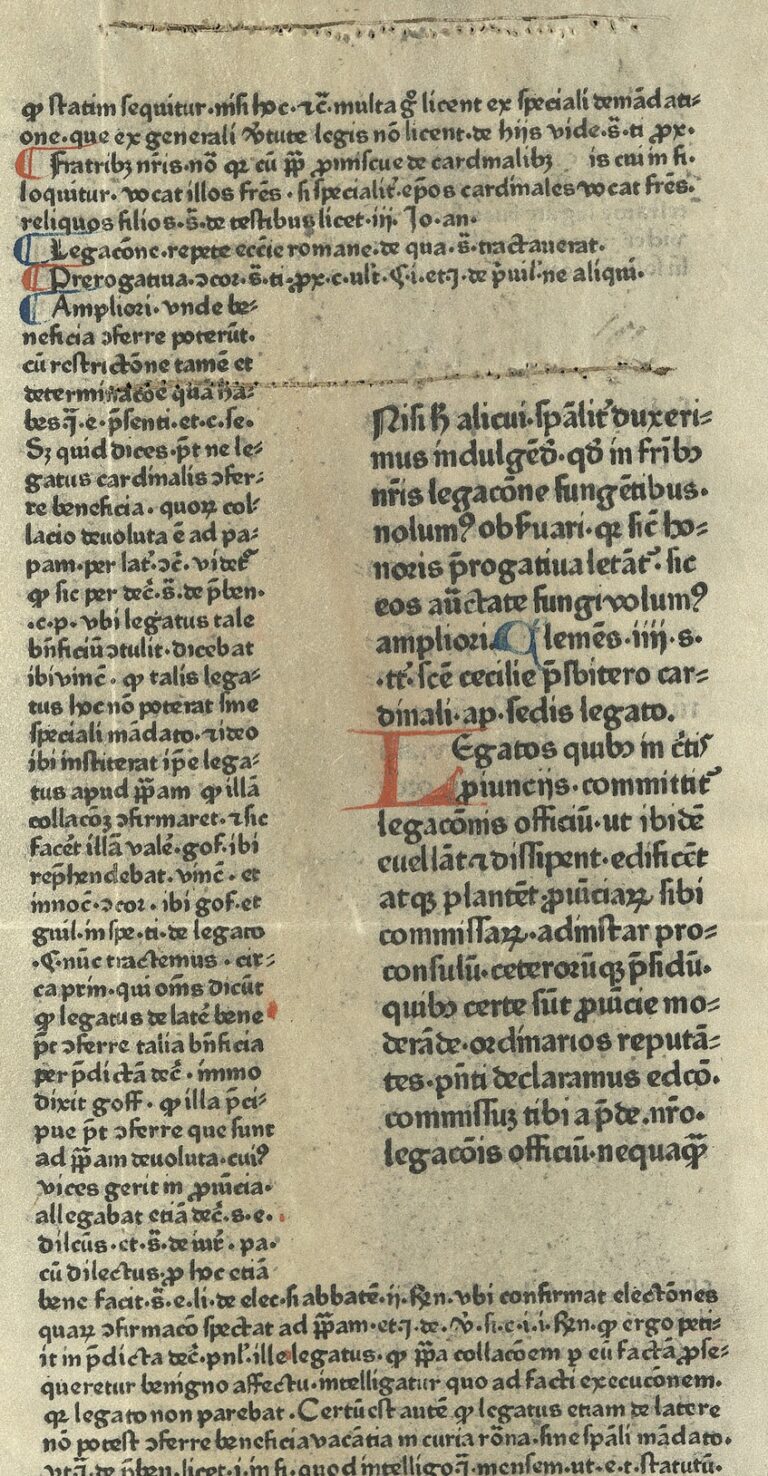 ꝙ statim sequitur.nisi hoc.⁊c̄.multa gͦ licent ex speciali demādati=
one.que ex generali v̓tute legis nō licent.de hijs vide.s̄.ti ꝓx.
Fratribꝫ nr̄is.nō qꝛ cū pp̄ ꝓmiscue de cardinalibꝫ is cui in fi.
loquitur. vocat illos fr̄es. si specialit̓.ep̄os cardinales vocat fr̄es.
reliquos filios.s̄.de testibus licet.iij. Jo.an.
Legacōne.repete eccīe romane.de qua.s̄.tractauerat.
Prerogatiua.ɔcor.s̄.ti.ꝓx.c.ult̓.ꝯ.i.et.j̄.de p̓uil.ne aliqui.
Ampliori.vnde be=
neficia ɔferre poterūt.
cū restrictōne tamē et
determinatōe quā ha=
bes.j̄.e.p̄senti.et.c.se.
Sꝫ quid dices.pt̄ ne le=
gatus cardinalis ɔfer=
re beneficia. quoꝝ col=
lacio deuoluta ē ad pa=
pam.per lat̓.ɔc̄.videt̓
ꝙ sic per dec̄.s̄.de p̄ben.
.c.p.vbi legatus tale
bn̄ficiū ɔtulit.dicebat
ibi vinc̄. ꝙ talis lega=
tus hoc nō poterat sine
speciali mādato.⁊ideo
ibi institerat ip̄e lega=
tus apud pp̄am ꝙ illā
collacōꝫ ɔfirmaret.⁊sic
facēt illā valē.gof.ibi
rep̄hendebat.vinc̄. et
innoc̄.ɔcor. ibi gof.et
guil.in spe.ti.de legato
.ꝯ.nūc tractemus.cir=
ca prin.qui om̄s dicūt
ꝙ legatus de latē bene
pt̄ ɔferre talia bn̄ficia
per p̄dictā dec̄. immo
dixit goff. ꝙ illa p̄ci=
pue pt̄ ɔferre que sunt
ad pp̄am deuoluta.cui⁹
vices gerit in ꝓuīcia.
allegabat etiā dec̄.s.e.
dilcūs.et.s̄.de iur̄. pa.
cū dilectus.ꝓ hoc etiā
bene facit.s̄.e.li.de elec.si abbatē.ij.Rn̄.vbi confirmat electōnes
quaꝝ ɔfirmacō spectat ad pp̄am.et.j̄.de. v̓.si.c.i.i.Rn̄.ꝙ ergo peti=
it in p̄dicta dec̄.pnl̓.ille legatus. ꝙ pp̄a collacōem ꝑ eū factā ꝓse=
queretur benigno affectu.intelligatur quo ad facti execucōnem.
qꝛ legato non parebat. Certū est autē ꝙ legatus etiam de latere
nō potest ɔferre beneficia vacātia in curia rōna.sine sp̄ali mādato.
vt.j̄.de p̄ben.licet.i.in fi.quod intelligo.j̄.mensem.ut.e.t.statutū.
Nisi h̄ alicui.sp̄alit̓ duxeri=
mus indulgēd̄. qd̄ in fr̄ibꝫ
nr̄is legacōne fungētibus.
nolum⁹ obs̓uari.qꝛ sic̄ ho=
noris p̄rogatiua letāt̓. sic
eos auc̄tate fungi volum⁹
ampliori. Clemēs.iiij.s.
.tt̓.sc̄e cecilie p̄sbitero car=
dinali.ap.sedis legato.
Legatos quibꝫ in c̄tis
ꝓuincijs.committit̓
legacōnis officiū.ut ibidē
euellāt ⁊ dissipent.edificēt
atqꝫ plantēt.ꝓuīciaꝝ sibi
commissaꝝ.ad instar pro=
consulū.ceterorūqꝫ p̄sidū.
quibꝫ certe sūt ꝓuīcie mo=
derāde.ordinarios reputā=
tes.pn̄ti declaramus edcō.
commissuꝫ tibi a p̄de.nr̄o.
legacōis officiū.nequaqꝫ